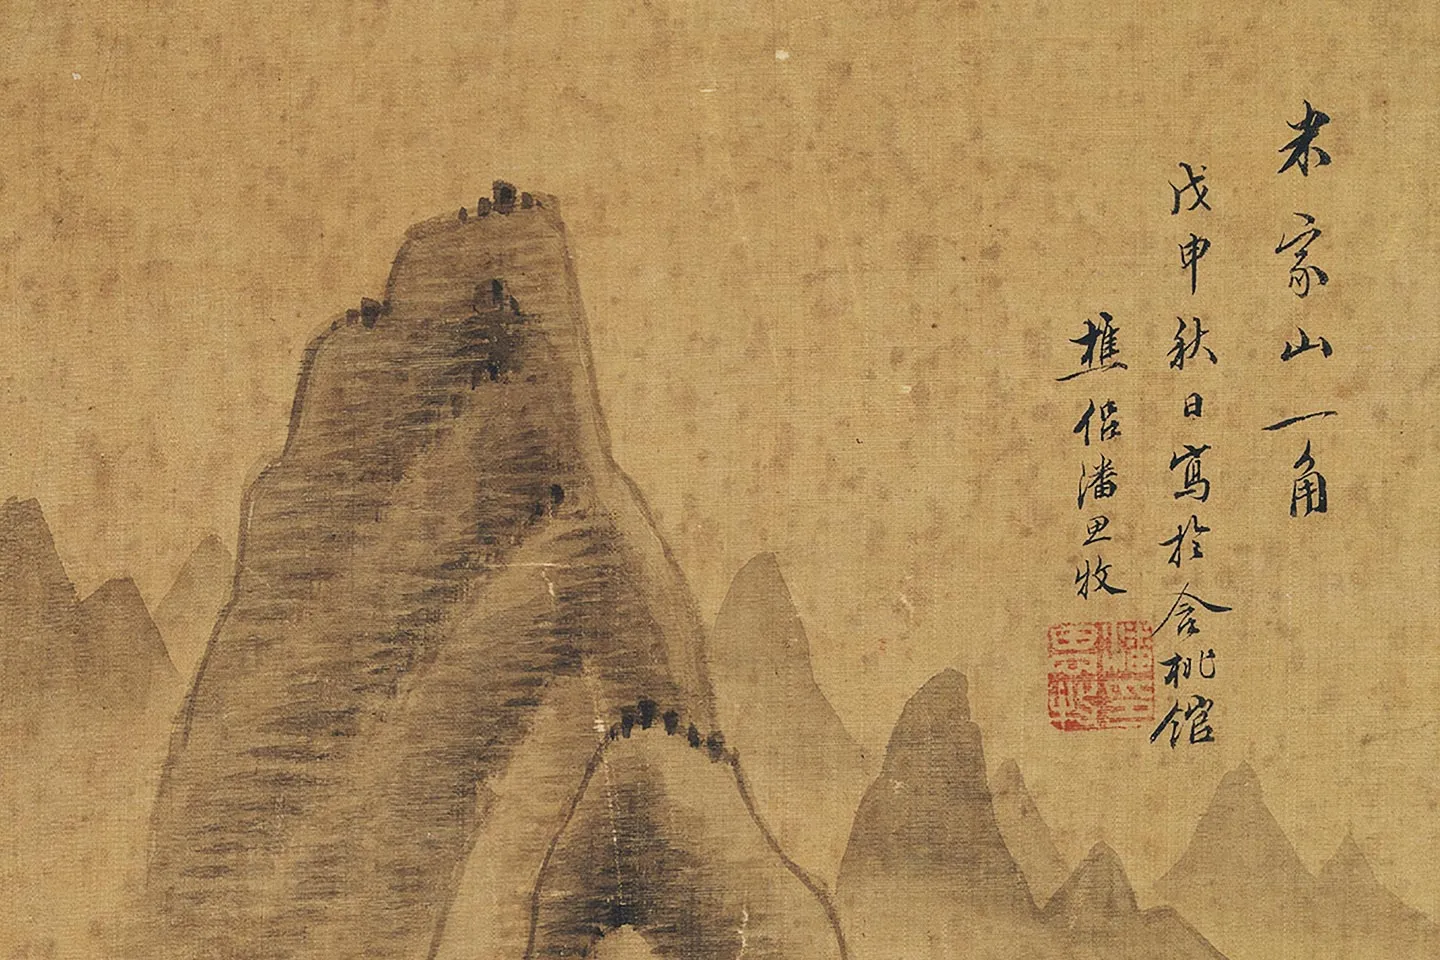 米家山一角
戊申秋日寫於含桃館
樵侶潘思牧